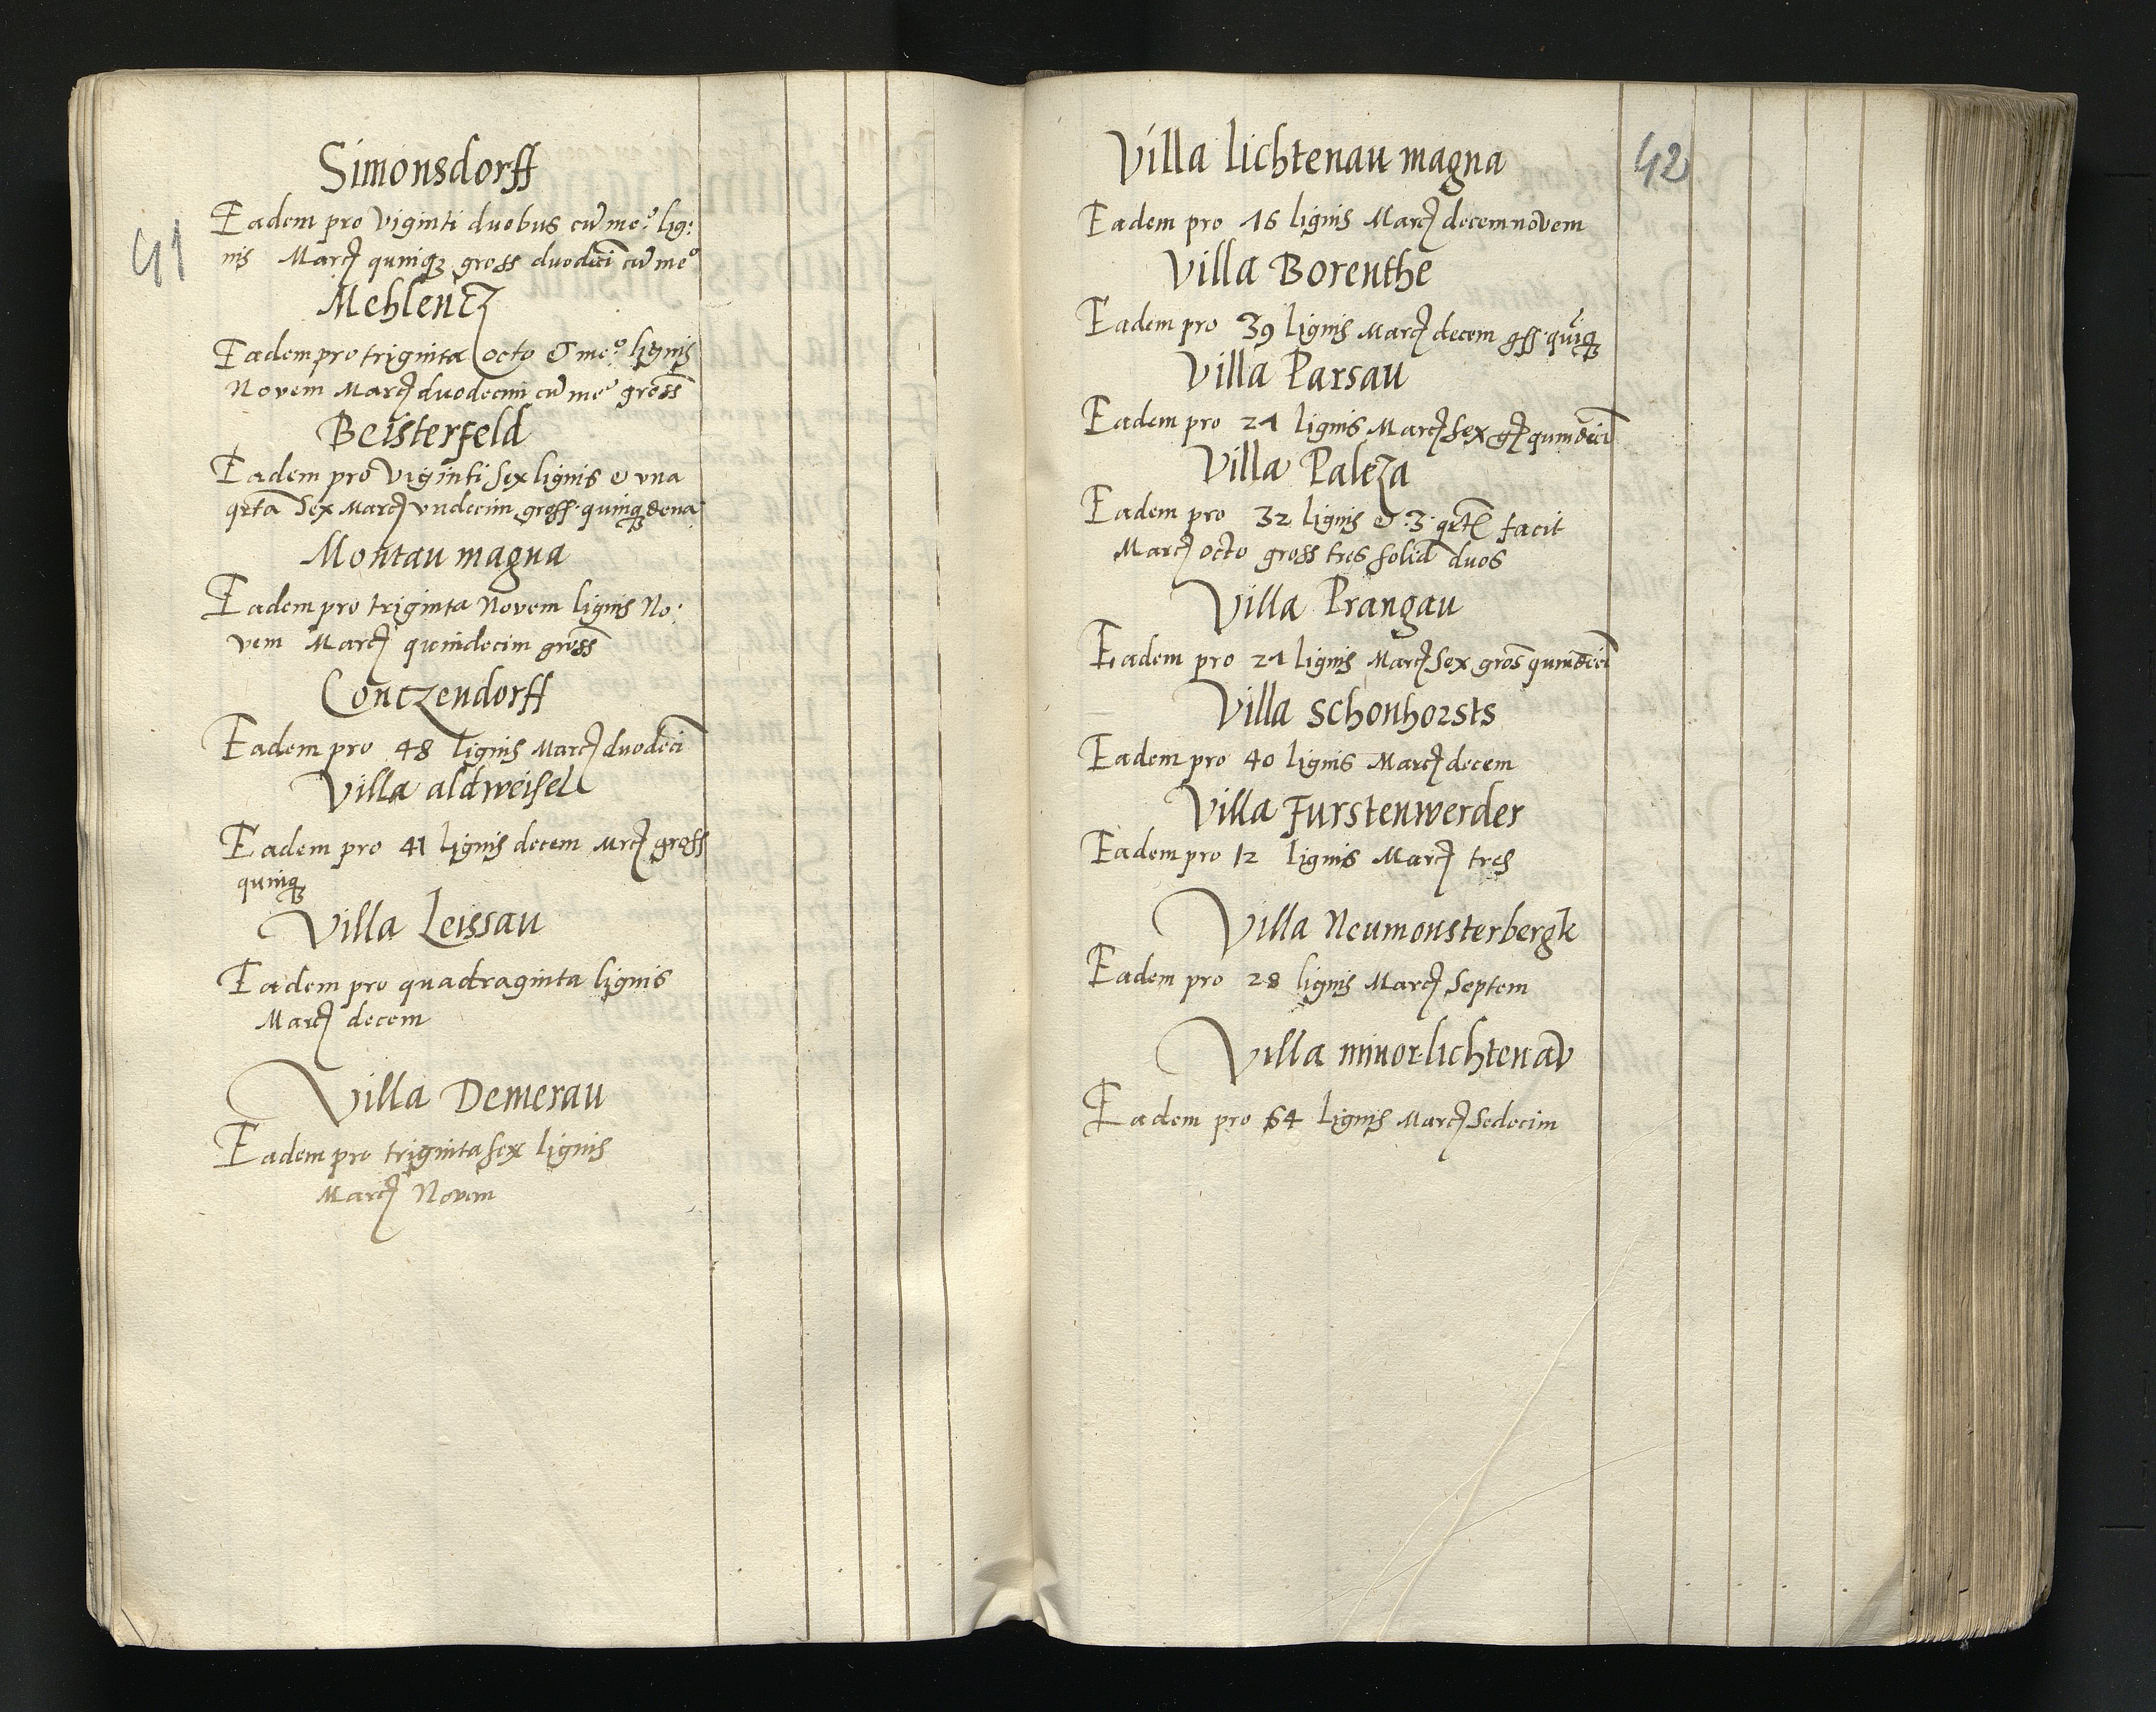 41
Simonsdorff
Eadem pro Viginti duobus cū me:° lig:
nis Marcȝ quinqȝ gross duodeci cū me°
Mehlencz
Eadem pro triginta octo et me:° lignis
Novem Marcȝ duodecim cū me° gross
Beisterfeld
Eadem pro Viginti sex lignis et vna
qrta Sex Marcȝ vndecim gross quinqȝ dena
Montau magna
Eadem pro triginta Novem lignis No:
vem Marcȝ quindecim gross
Conczendorff
Eadem pro 48 lignis Marcȝ duodeci
Villa aldweisel
Eadem pro 41 lignis decem Mrcȝ gross
quinqȝ
Villa Leissau
Eadem pro quadraginta lignis
Marcȝ decem
Villa Demerau
Eadem pro triginta sex lignis
Marcȝ Novem
42
Villa lichtenau magna
Eadem pro 16 lignis Marcȝ decemnovem
Villa Borenthe
Eadem pro 39 lignis Marcȝ decem gss quiqȝ
Villa Parsau
Eadem pro 21 lignis Marcȝ Sex gȝ quindeci
Villa Paleza
Eadem pro 32 lignis et .3. qrt facit
Marcȝ octo gross tres solid duos
Villa Prangau
Eadem pro 21 lignis Marcȝ Sex gros quindeci
Villa Schonhorsts
Eadem pro 40 lignis Marcȝ decem
Villa Furstenwerder
Eadem pro 12 lignis Marcȝ tres
Villa Neumonsterbergk
Eadem pro 28 lignis Marcȝ Septem
Villa minor lichtenav
Eadem pro 64 Lignis Marcȝ Sedecim